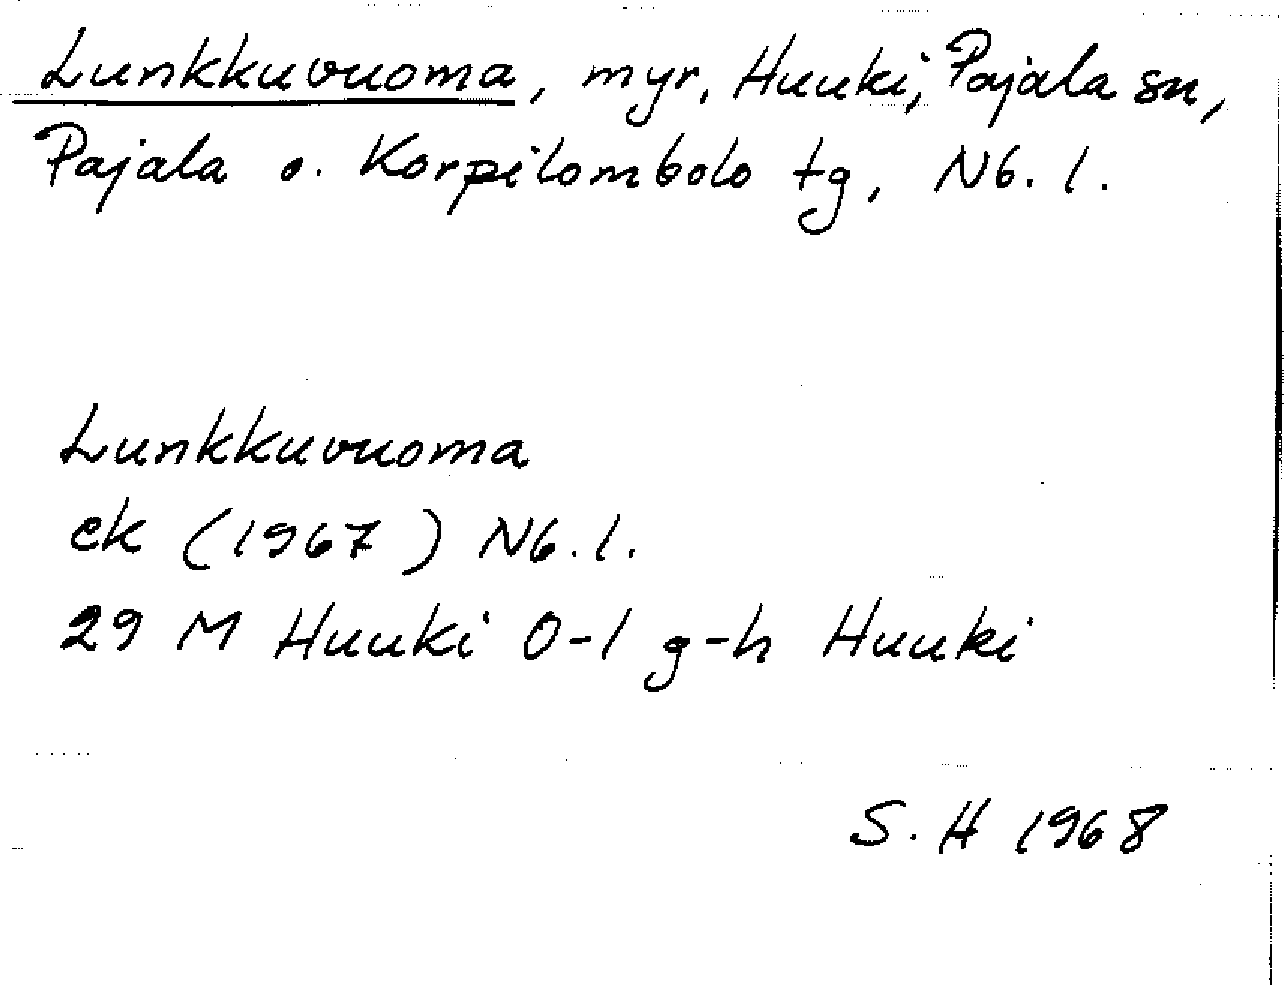 Lunkkuvuoma, myr, Huuki, Pajala sn,
Pajala o. Korpilombolo tg, Nb. l.
Lunkkuvuoma
ek (1967) Nb. l.
29 M Huuki 0-1 g-h Huuki
S. H 1968